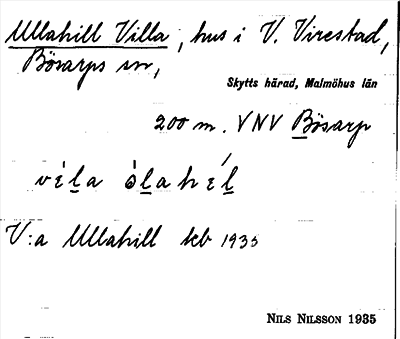 Ullahill Villa, hus i V. Virestad,
Bösarps sn,
Skytts härad, Malmöhus län
200 m. VNV Bösarp
víl̲a òl̲ahél̲
V:a Ullahill kb 1935
NILS NILSSON 1935